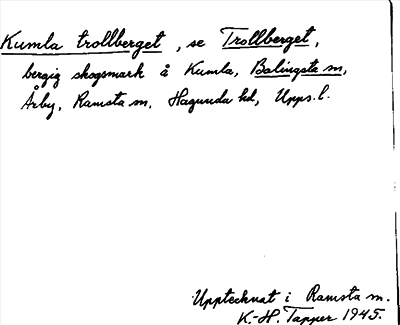 Kumla trollberget, se Trollberget,
bergig skogsmark å Kumla, Balingsta sn,
Årby, Ramsta sn, Hagunda hd, Upps. l.
Upptecknat i Ramsta sn.
K.-H. Tapper 1945.